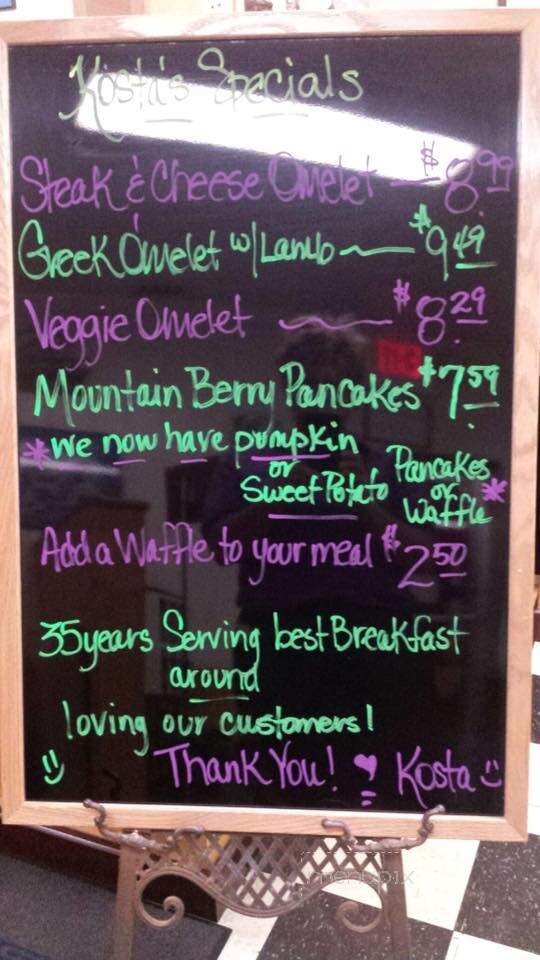 Kosta's Specials
Steak & Cheese Omelet — $8.99
Greek Omelet w/ Lamb — $9.49
Veggie Omelet — $8.29
Mountain Berry Pancakes $7.59
*we now have pumpkin
or
Sweet Potato Pancakes
or
Waffle*
Add a Waffle to your meal $2.50
35 years Serving best Breakfast
around
loving our customers!
Thank You! Kosta
menupix